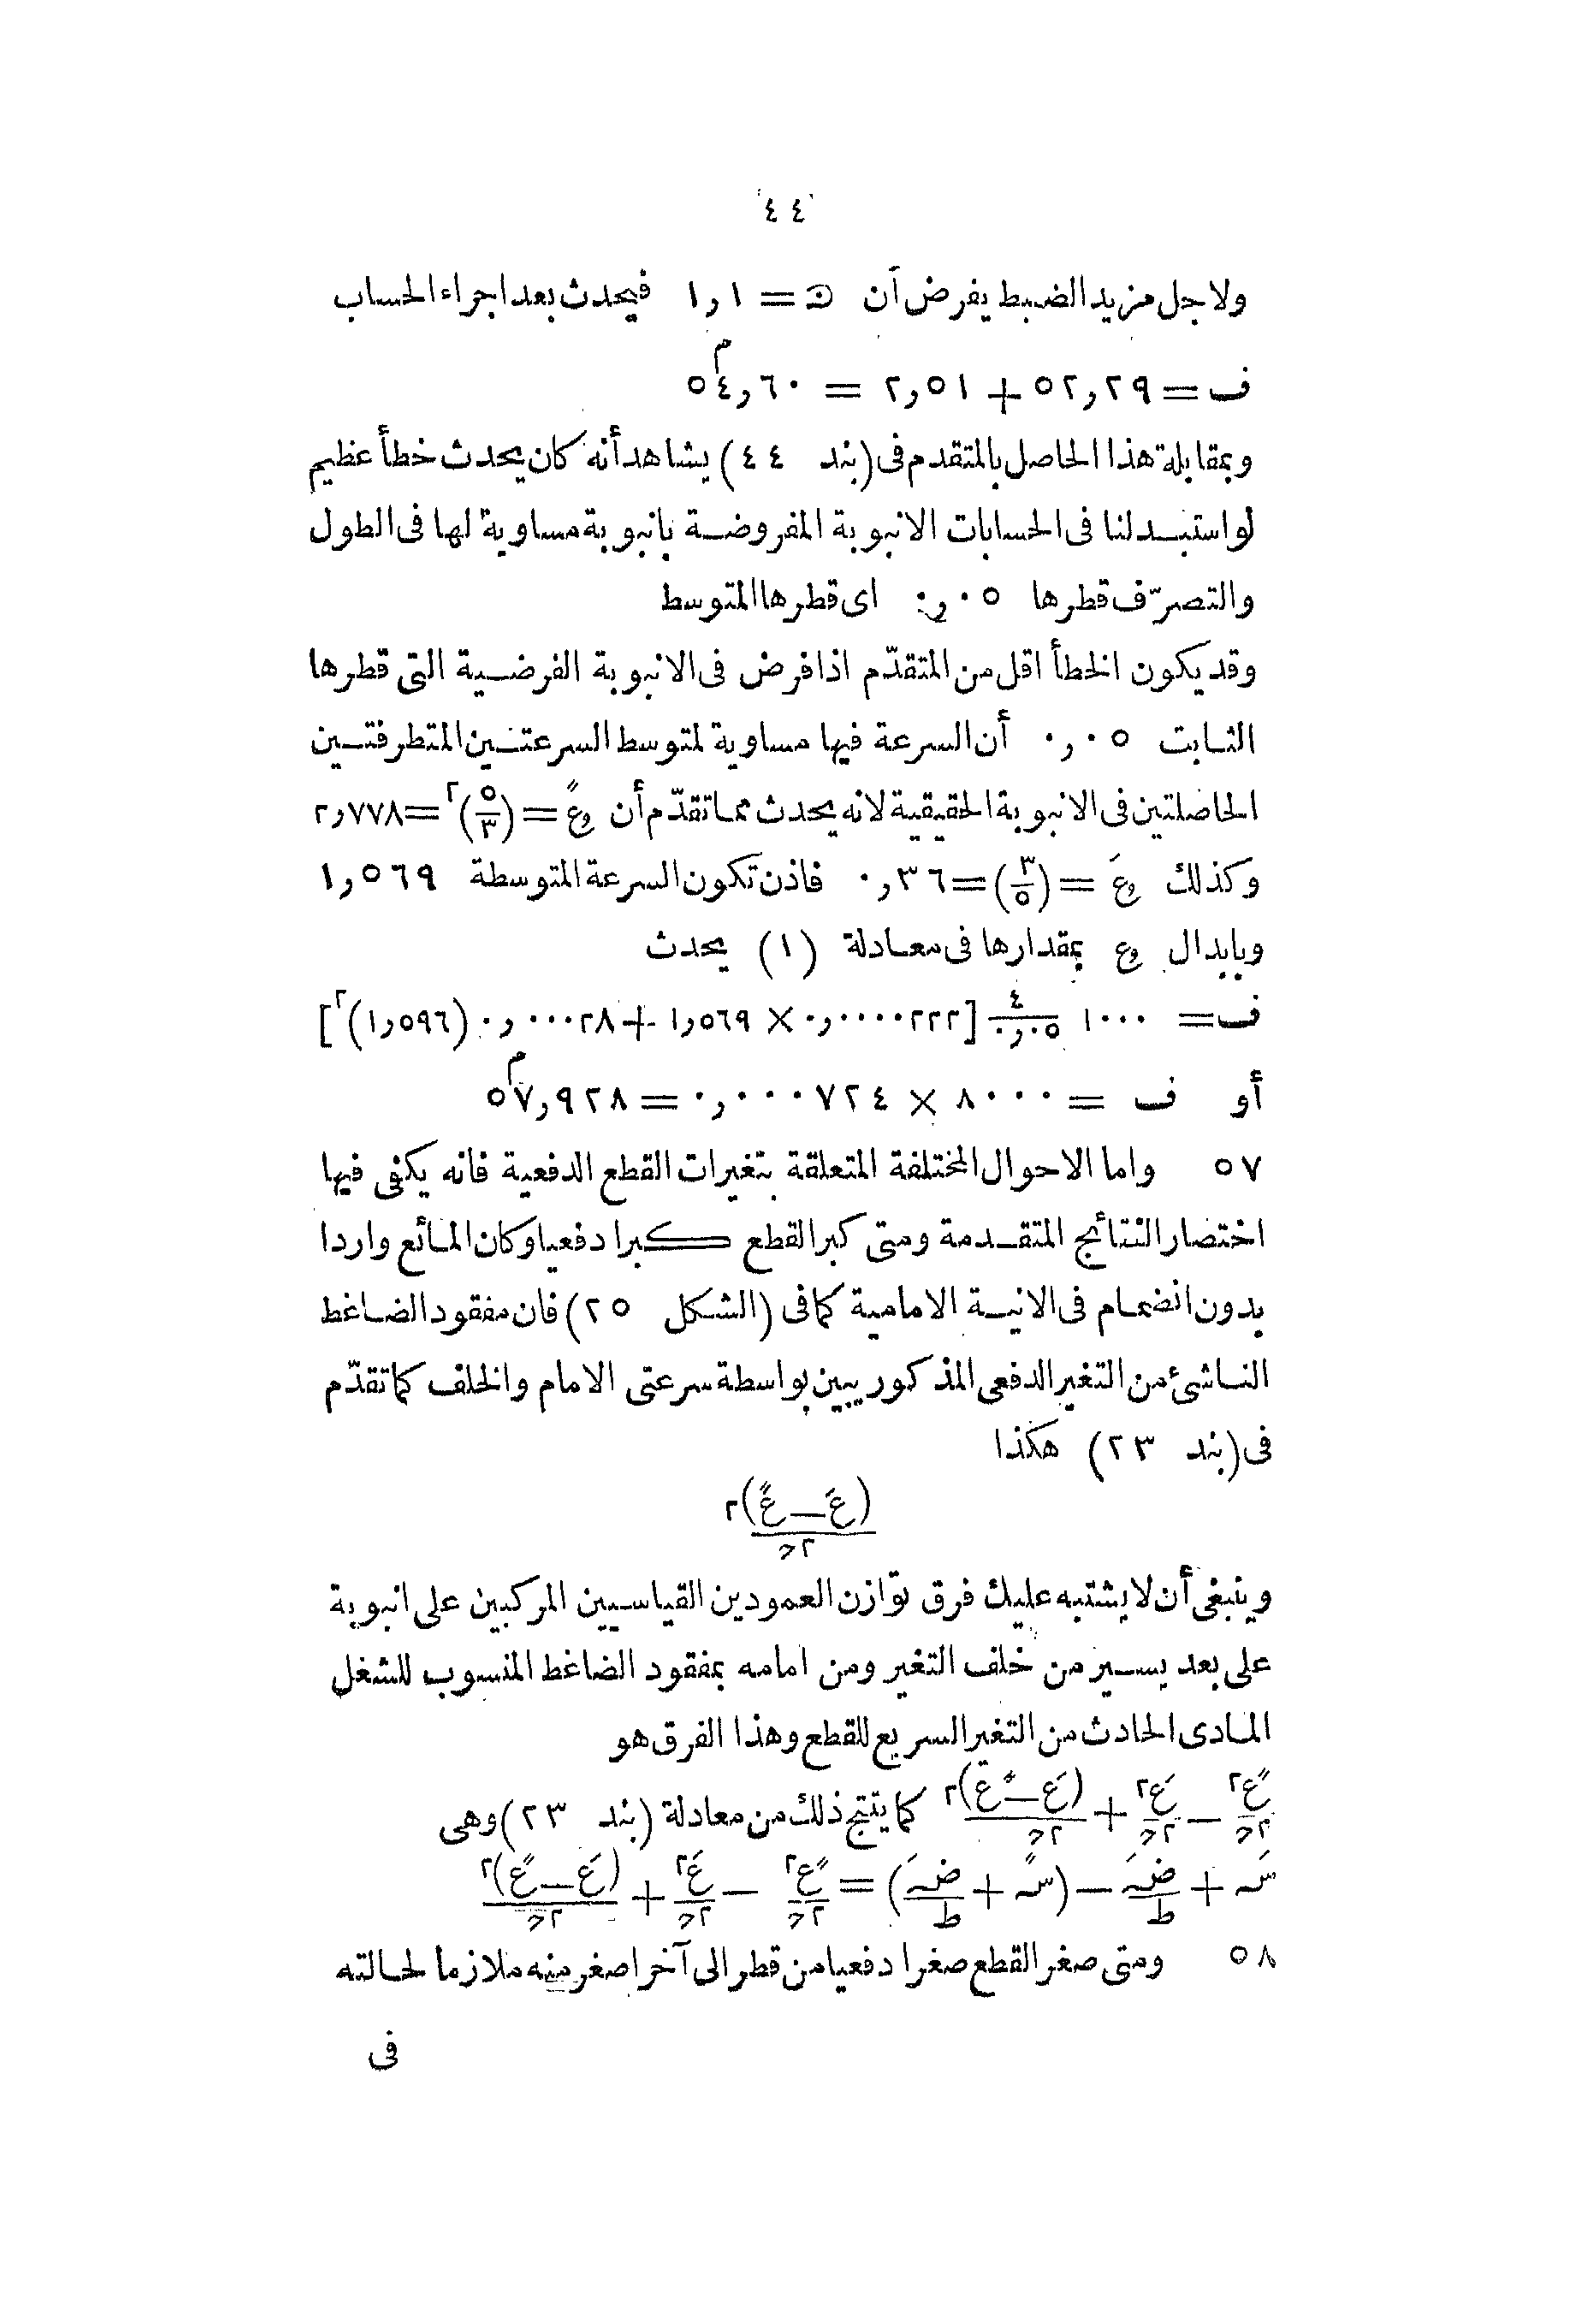 ٤٤
ولاجل مزيد الضبط يفرض أن ن = ١,١ فيحدث بعد اجراء الحساب
ف = ٥٢,٢٩ + ٢,٥١ = ٥٤,٦٠ م
وبمقابلة هذا الحاصل بالمتقدم فى (بند ٤٤) يشاهد أنه كان يحدث خطأ عظيم
لو استبدلنا فى الحسابات الانبوبة المفروضة بانبوبة مساوية لها فى الطول
والتصرّف قطرها ٠,٠٥ اى قطرها المتوسط
وقد يكون الخطأ اقل من المتقدّم اذا فرض فى الانبوبة الفرضية التى قطرها
الثابت ٠,٠٥ أن السرعة فيها مساوية لمتوسط السرعتين المتطرفتين
الحاصلتين فى الانبوبة الحقيقية لانه يحدث مما تقدّم أن وعً = (٥/٣)٢ = ٢,٧٧٨
وكذلك وعَ = (٣/٥) = ٠,٣٦ فاذن تكون السرعة المتوسطة ١,٥٦٩
وبابدال وع بمقدارها فى معادلة (١) يحدث
ف = ١٠٠٠ ٤/٠,٠٥ [٠,٠٠٠٠٢٢٢ × ١,٥٦٩ + ٠,٠٠٠٢٨ (١,٥٩٦)٢]
أو ف = ٨٠٠٠٠ × ٠,٠٠٠٧٢٤ = ٥٧,٩٢٨ م
٥٧ واما الاحوال المختلفة المتعلقة بتغيرات القطع الدفعية فانه يكفى فيها
اختصار النتائج المتقدمة ومتى كبر القطع كبرا دفعيا وكان المائع واردا
بدون انضمام فى الانية الامامية كما فى (الشكل ٢٥) فان مفقود الضاغط
الناشئ من التغير الدفعى المذكور يبين بواسطة سرعتى الامام والخلف كما تقدّم
فى (بند ٢٣) هكذا
(عَ – عً)٢ / ٢ح
وينبغى أن لا يشتبه عليك فرق توازن العمودين القياسيين المركبين على انبوبة
على بعد يسير من خلف التغير ومن امامه بمفقود الضاغط المنسوب للشغل
المادى الحادث من التغير السريع للقطع وهذا الفرق هو
عً٢/٢ح – عَ٢/٢ح + (عَ – عً)٢/٢ح كما ينتج ذلك من معادلة (بند ٢٣) وهى
سَه + ضَه/ط – (سً + ضَه/ط) = عً٢/٢ح – عَ٢/٢ح + (عَ – عً)٢/٢ح
٥٨ ومتى صغر القطع صغرا دفعيا من قطر الى آخر اصغر منه ملازما لحالته
فى